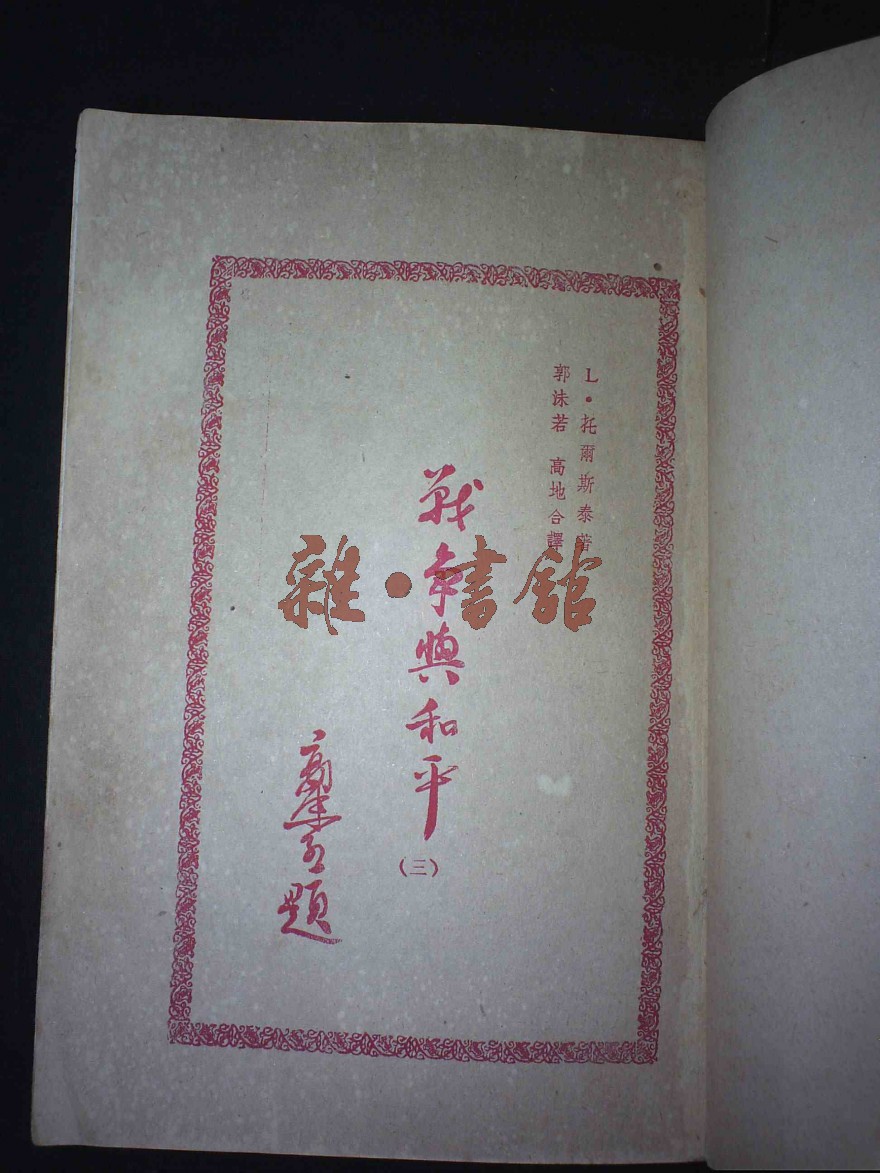 L・托爾斯泰著
郭沫若 高地合譯
戰爭與和平
(三)
題
雜・書館